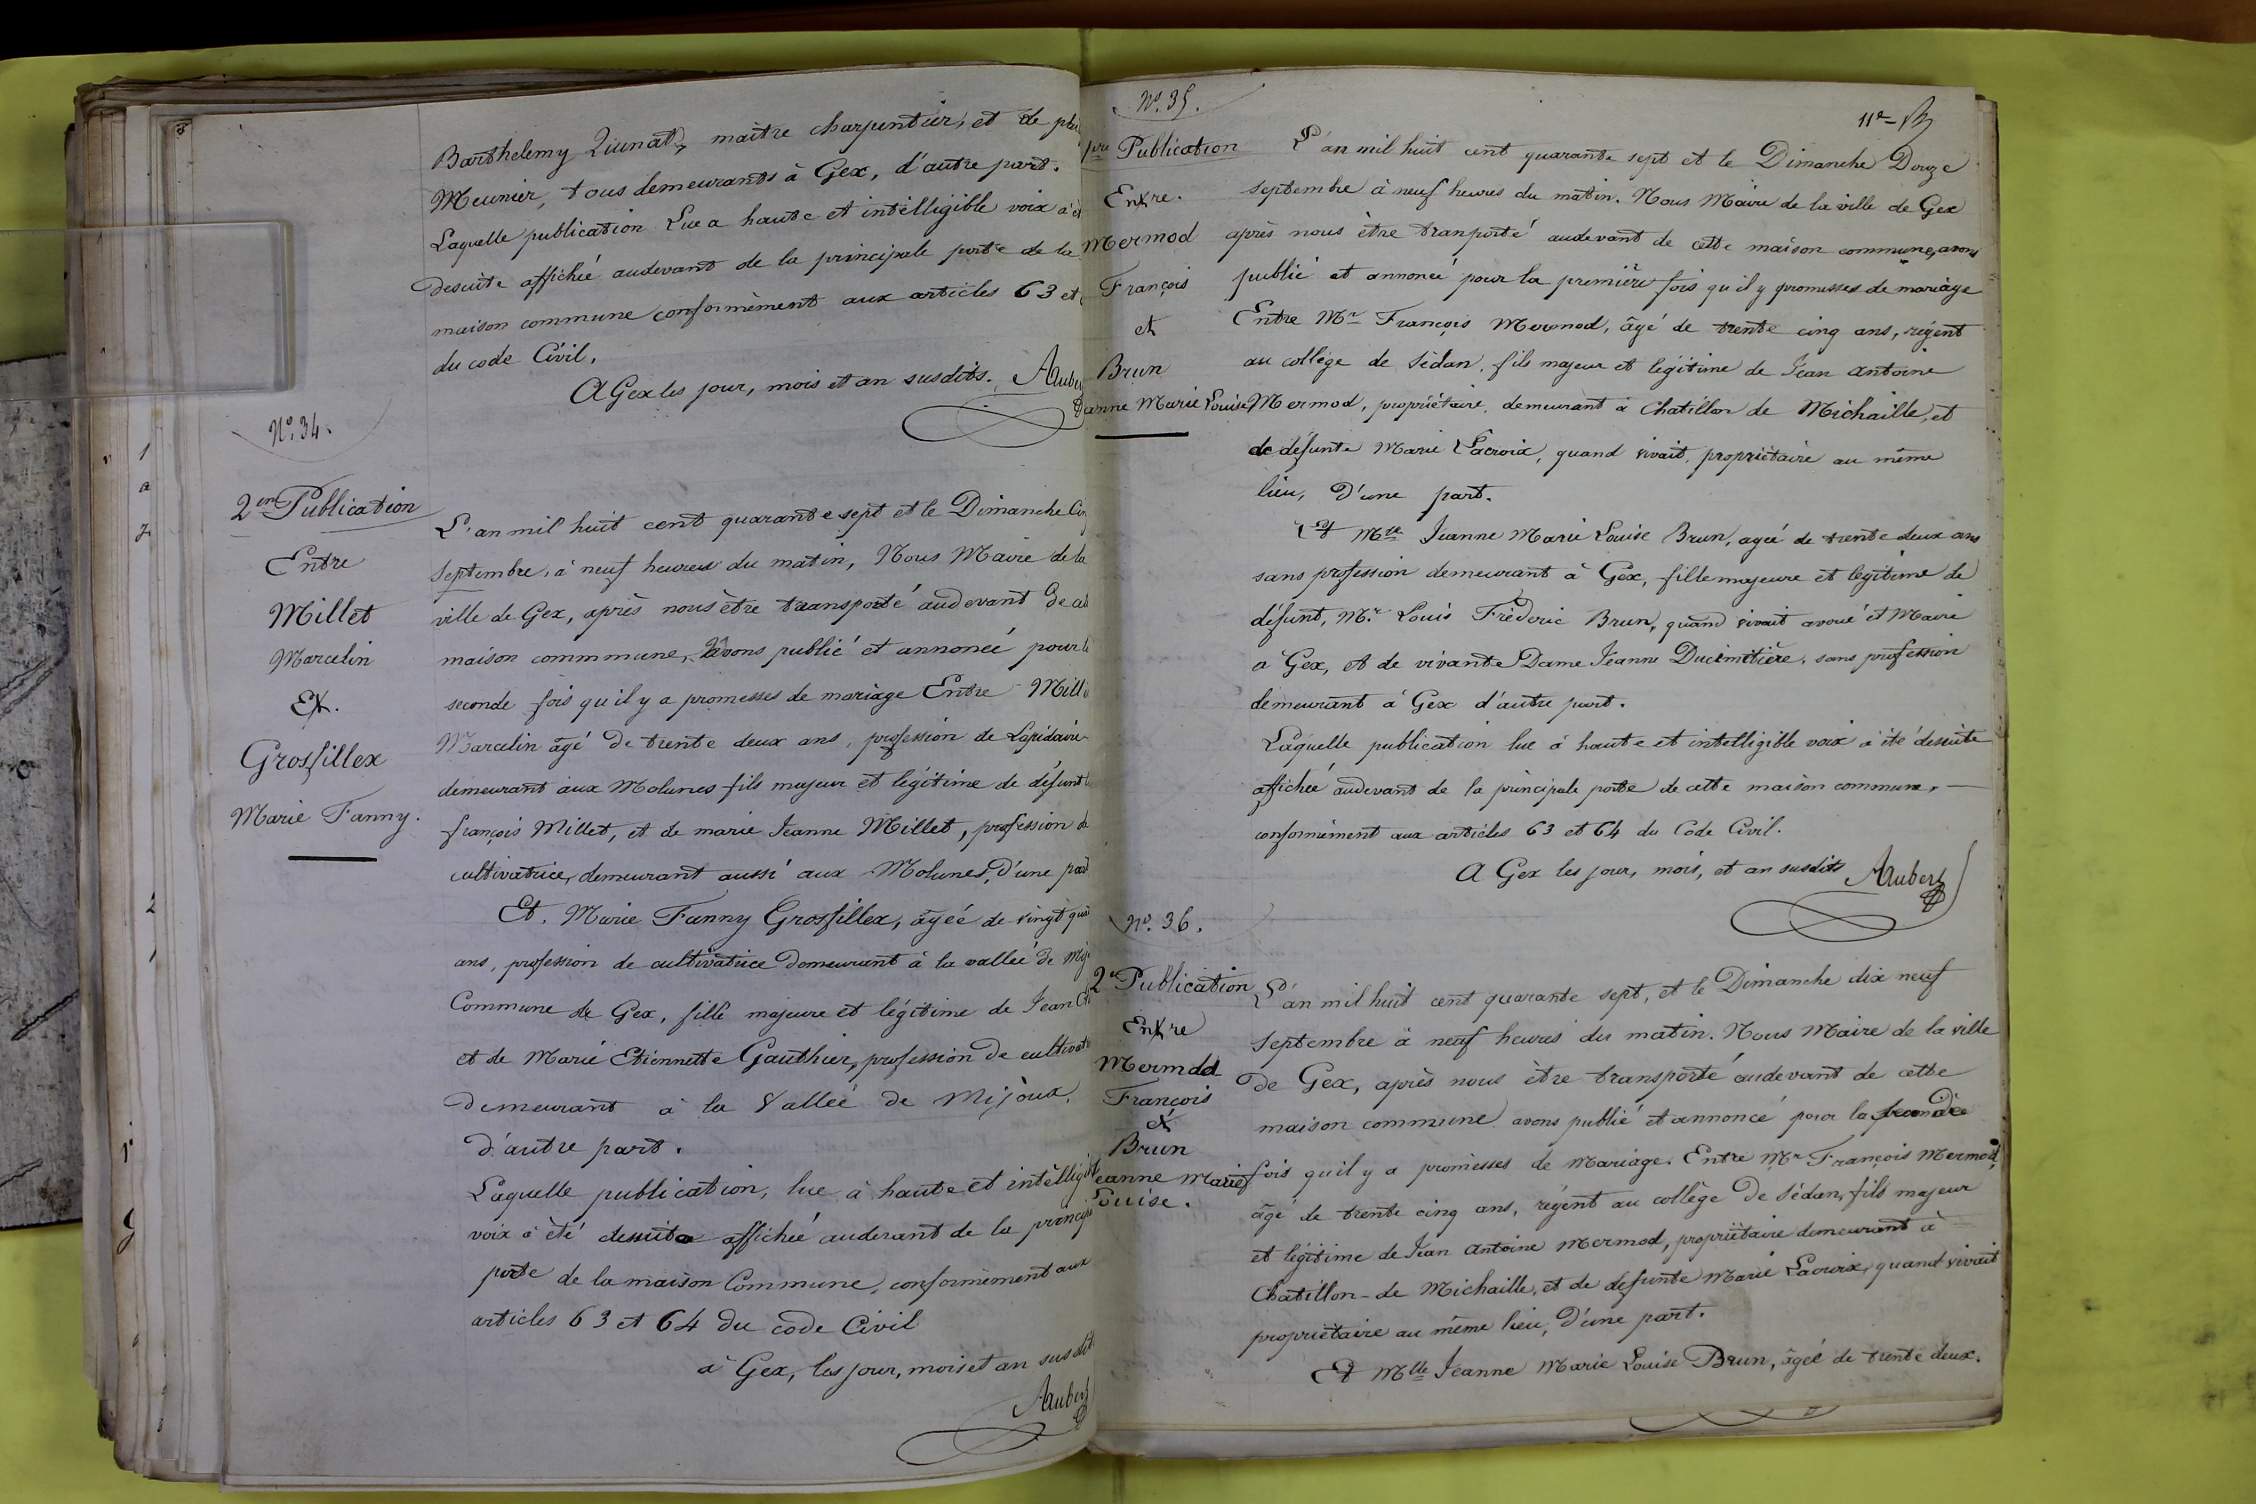 Barthelemy maître charpentier, et de
Meunier, tous demeurants à Gex, d'autre part.
Laquelle publication Lue a haute et intelligible voix a
desuite affichée audevant de la principale porte de la
maison commune conformèment aux articles 63 et
du code Civil.
A Gex les jour, mois et an susdits. Auber
N.º 34.
2.me Publication
Entre
Millet
Marcelin
Et.
Grosfillex
Marie Fanny.
L'an mil huit cent quarante sept et le Dimanche Cin
septembre, à neuf heures du matin, Nous Maire de la
ville de Gex, après nous être transporté audevant de
maison commmune, avons publié et annoncé pour
seconde fois qu'il y a promesses de mariage Entre Mill
Marcelin âgé de trente deux ans, profession de Lapidaire
demeurant aux Molunes fils majeur et légitime de défunt
françois Millet, et de marie Jeanne Millet, profession de
cultivatrice, demeurant aussi aux Molunes, d'une part
Et. Marie Fanny Grosfillex, âgéé de vingt
ans, profession de cultivatrice demeurant à la valléé de Mij
Commune de Gex, fille majeure et légitime de Jean
et de Marie Etiennette Gauthier, profession de cultivat
demeurant à la Valléé de Mijoux,
d'autre part.
Laquelle publication, lue à haute et intèllig
voix à été desuite affichée audevant de la princip
porte de la maison Commune, conformèment aux
articles 63 et 64 du code Civil
à Gex, les jour, mois et an susdit
Auber
N.º 35.
11e
1ère Publication
Entre.
Mermod
François
et
Brun
Jeanne Marie Louise
L'an mil huit cent quarante sept et le Dimanche Douze
septembre à neuf heures du matin. Nous Maire de la ville de Gex
après nous être tranporté audevant de cette maison commune, avons
publié et annoncé pour la première fois qu'il y promesses de mariage
Entre Mr François Mermod, âgé de trente cinq ans, régent
au collége de Sédan, fils majeur et légitime de Jean Antoine
Mermod, propriétaire, demeurant à Chatillon de Michaille, et
de défunte Marie Lacroix, quand vivait, propriétaire au même
lieu, D'une part.
Et Mlle Jeanne Marie Louise Brun, ageé de trente deux ans
sans profession demeurant à Gex, fille majeure et légitime de
défunt, Mr Louis Fréderic Brun, quand vivait avoué et Maire
a Gex, et de vivante Dame Jeanne Ducimetière, sans profession
demeurant à Gex d'autre part.
Laquelle publication lue à haute et intelligible voix à été desuite
affichée audevant de la principale porte de cette maison commune, —
conformèment aux articles 63 et 64 du Code Civil.
A Gex les jour, mois, et an susdits Aubert
N.º 36.
2e Publication
Entre
Mermod
François
et
Brun
Jeanne Marie
Louise.
L'an mil huit cent quarante sept, et le Dimanche dix neuf
septembre à neuf heures du matin. Nous Maire de la ville
De Gex, après nous être transporté audevant de cette
maison commune avons publié et annoncé pour la seconde
fois qu'il y a promesses de mariage. Entre Mr François Mermod,
âgé de trente cinq ans, régent au collège de Sédan, fils majeur
et légitime de Jean Antoine Mermod, propriètaire demeurant à
Chatillon-de Michaille, et de defunte Marie Lacroix, quand vivait
propriétaire au même lieu, D'une part.
Et Mlle Jeanne Marie Louise Brun, âgée de trente deux.